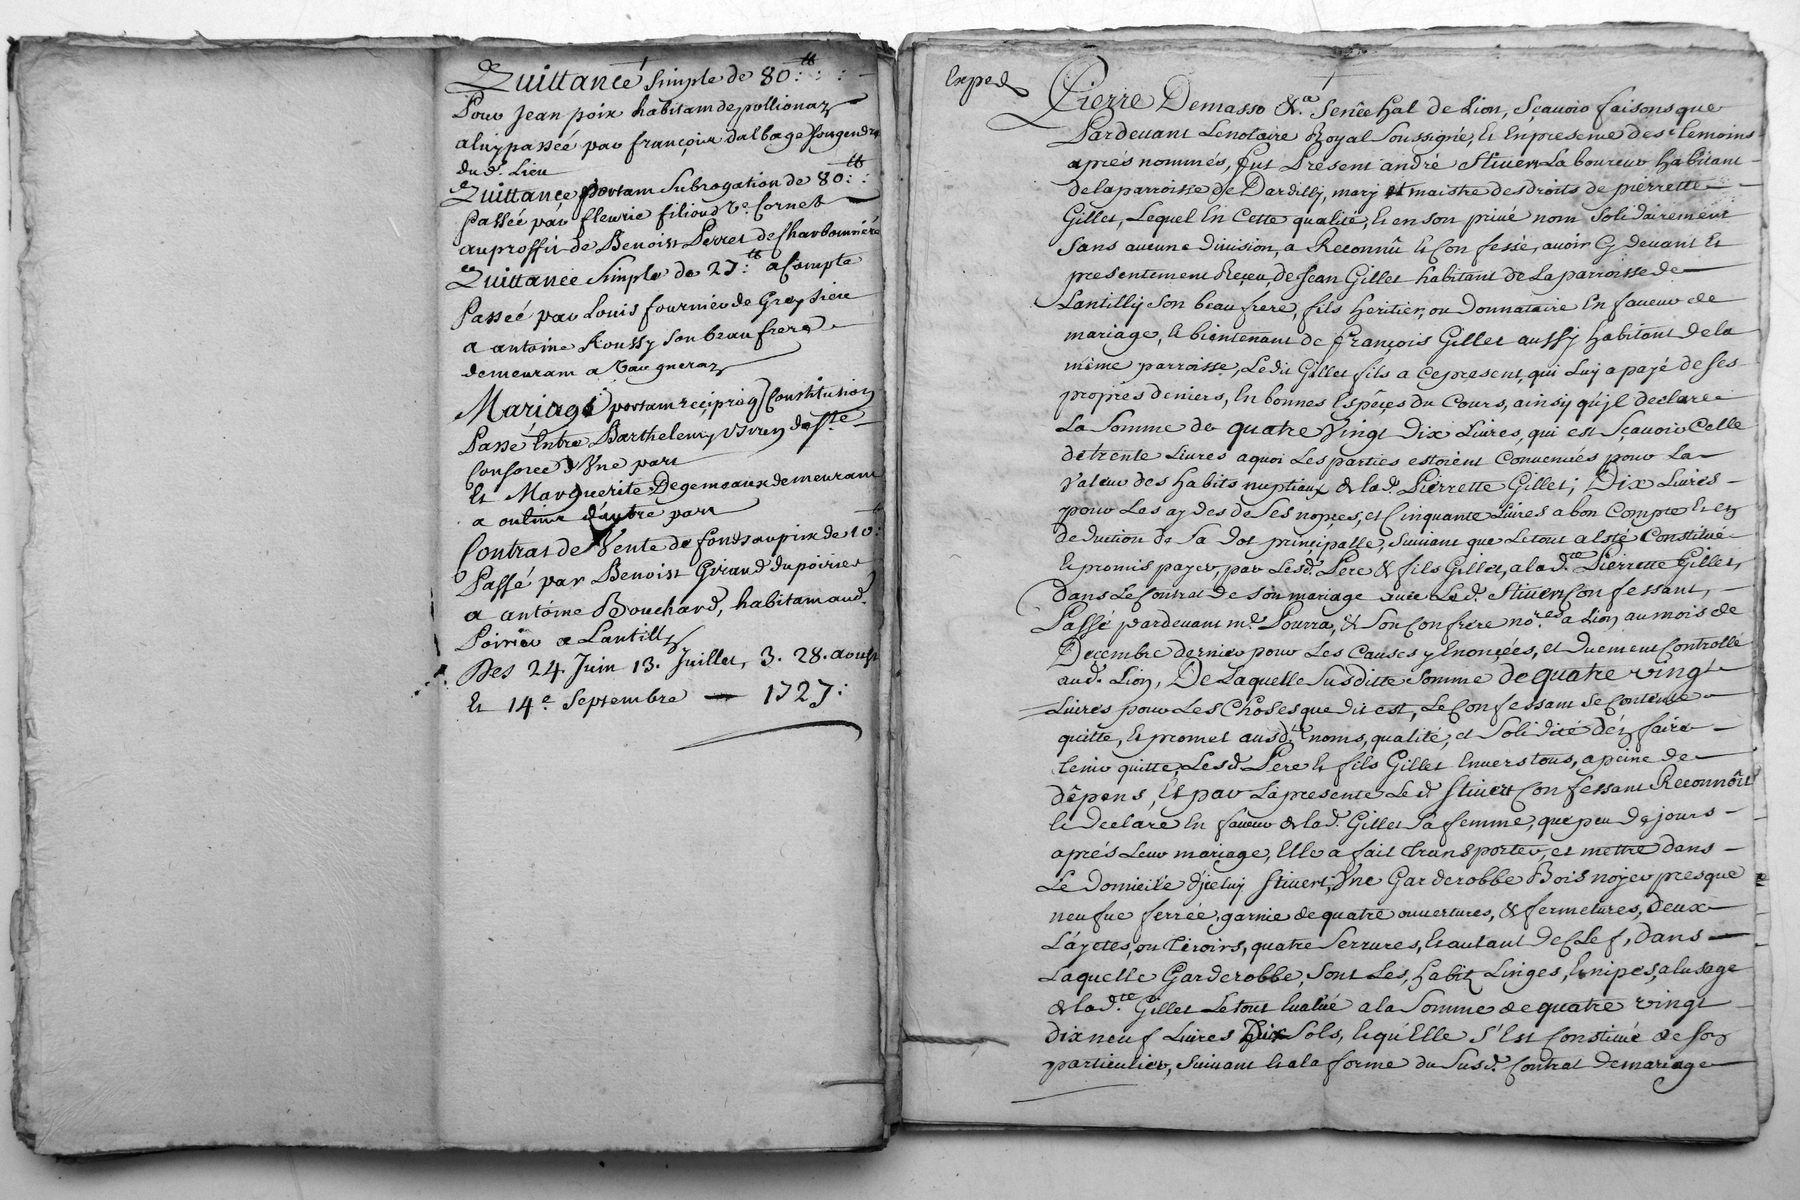 Quittance simple de 80.tt
Pour Jean poix habitant de pollionaz
a luy passée par françois dalbage
du d. Lieu
Quittance portant Subrogation de 80.tt
Passée par fleurie filioud Ve. Cornet
au proffit de Benoist Perret de Charbonniére
Quittance Simple de 27.tt a Compte
Passée par Louis fournier de Grezieu
a antoine Roussy son beau frere
demeurant a Vaugneraz
Mariage portant reciproq. Constitution
Passé Entre Barthelemy de Ste.
Consorce d'Une part
Et Marguerite Degemeaux demeurant
a d'autre part
Contrat de Vente de fonds au prix de 10.
Passé par Benoist Giraud du poirier
a antoine Bouchard, habitant aud.
Poirier a Lantilly
Des 24 Juin 13. Juillet, 3. 28. aoust
Et 14.e Septembre — 1727.
Exped
Pierre Demasso &.a Senéchal de Lion, Sçavoir faisons que
Pardevant Le notaire Royal Soussigné, Et En presence des temoins
aprés nommés, fut Present andré Stivert Laboureur habitant
de la parroisse de Dardilly, mary et maistre des droits de pierrette
Gillet, Lequel En Cette qualité, Et en son privé nom solidairement
Sans aucune division, a Reconnû Et Confessé, avoir Cy devant Et
presentement Reçeu, de Jean Gillet habitant de La parroisse de
Lantilly son beau frere, fils heritier, ou Donnataire En faveur de
mariage, Et bientenant de françois Gillet aussy habitant de la
même parroisse, Ledit Gillet fils a Ce present, qui Luy a payé de ses
propres deniers, En bonnes Espéces du Cours, ainsy qu'jl declare
La Somme de quatre Vingt Dix Livres, qui est Sçavoir Celle
de trente Livres a quoi Les parties estoient Convenües pour La
Valeur des habits nuptiaux de lad. Pierrette Gillet; Dix Livres
pour Les aydes de Ses nopces, et Cinquante Livres a bon Compte Et en
deduction de Sa Dot principalle, Suivant que Le tout a Esté Constitué
Et promis payer, par Lesd. Pere & fils Gillet, a lad.te Pierrette Gillet,
dans Le Contrat de Son mariage avec Led. Stivert Confessant,
Passé pardevant me. Pourra, & Son Confrere no.res a Lion au mois de
Decembre dernier pour Les Causes y Enoncées, et Duement Controllé
aud. Lion, De Laquelle Susditte Somme de quatre vingt
Livres pour Les Choses que dit est, Le Confessant se Contente
quitte, Et promet ausd.t noms, qualité, et Solidité d'en faire
tenir quitte, Lesd. Pere Et fils Gillet Envers tous, a peine de
dépens, Et par La presente Led. Stivert Confessant Reconnoît
Et declare En faveur de lad. Gillet Sa femme, que peu de jours
aprés Leur mariage, Elle a fait transporter, et mettre dans
Le Domicile d'jceluy Stivert, Une Garderobbe Bois noyer presque
neufve ferrée, garnie de quatre ouvertures, & fermetures, deux
Layetes, ou tiroirs, quatre Serrures, Et autant de Clef, dans
Laquelle Garderobbe, sont Les, habitz Linges, Et nipes, a l'usage
de lad.te Gillet Le tout Evalué a la Somme de quatre vingt
dix neuf Livres Dix Sols, Et qu'Elle s'Est Constitué de son
particulier, Suivant Et a la forme du Susd. Contrat de mariage